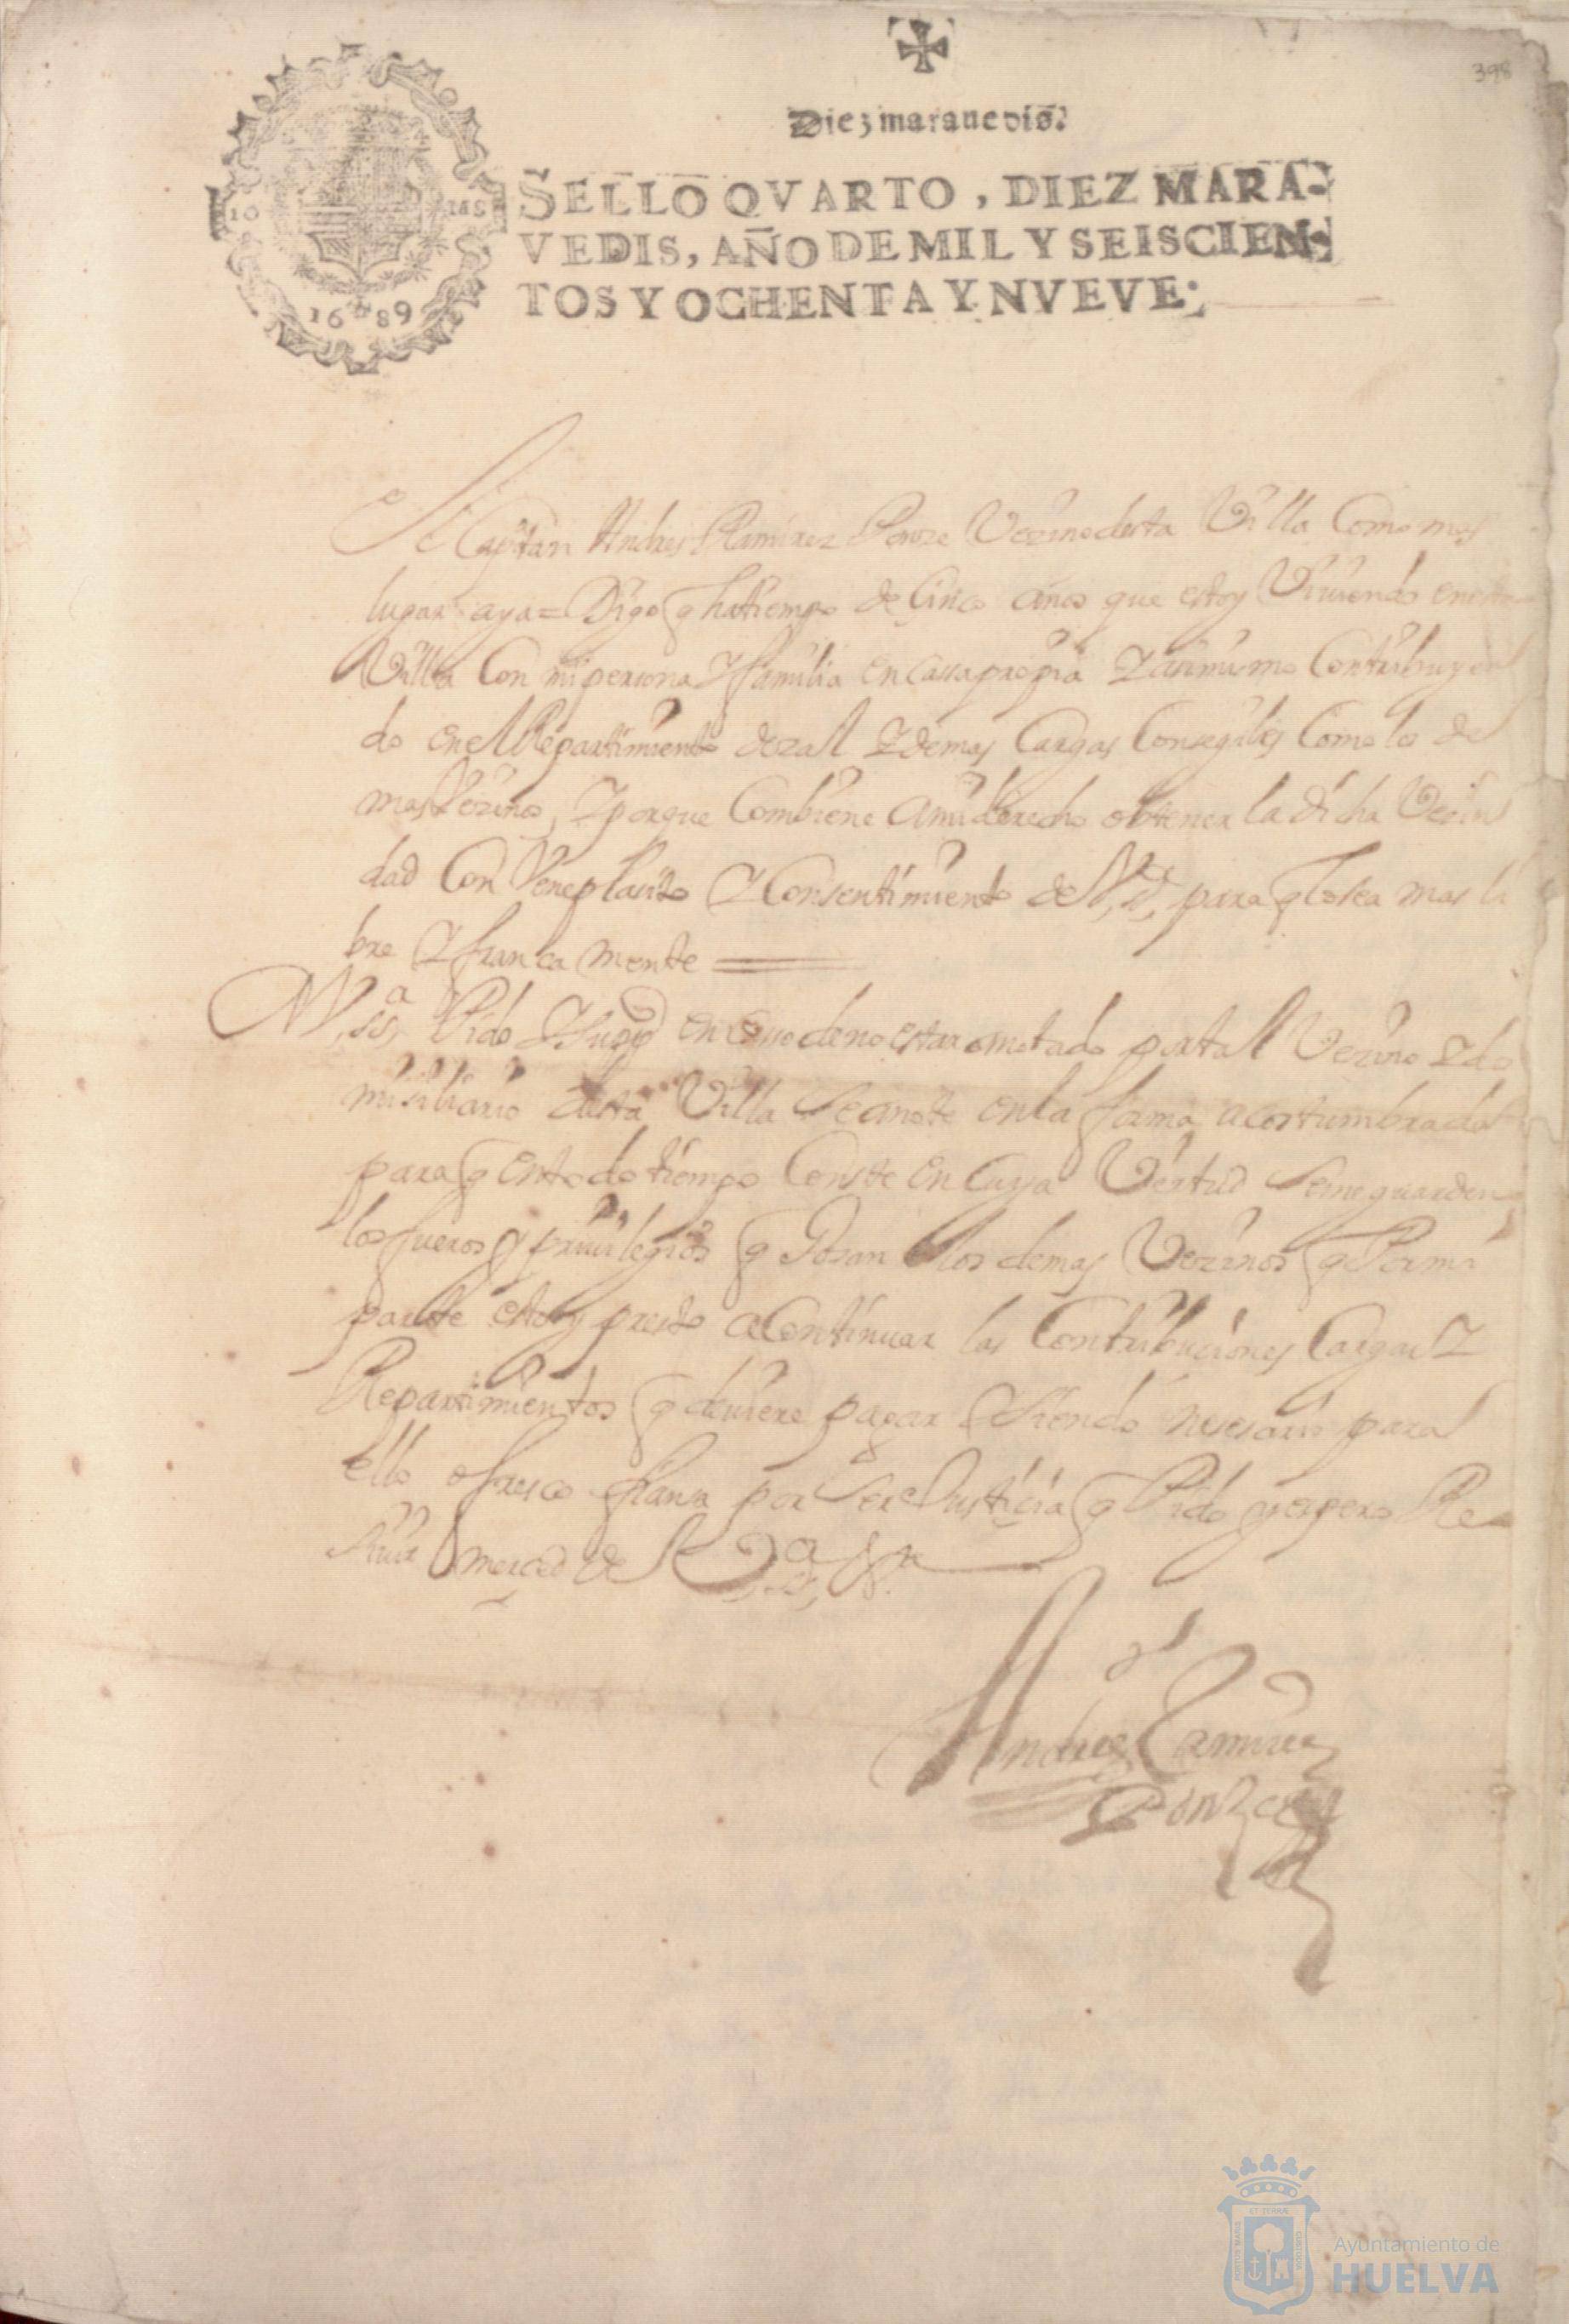 398
Diez marauedis.
SELLO QVARTO, DIEZ MARA-
VEDIS, AÑO DE MIL Y SEISCIEN-
TOS Y OCHENTA Y NVEVE.
10 MS
1689
El Capitan Andres Ramirez Ponze Vezino desta Villa Como mas
lugar aya = Digo q ha tiempo de Cinco años que estoy Viuiendo en esta
Villa Con mi persona Y familia en Cassa propia Y asimismo Contribuyen
do en el Repartimiento de zal Y demas Cargas Consegiles Como los de
mas Vezinos, Y porque Combiene a mi derecho obtener la dicha Vecin
dad Con Veneplasito Y Consentimiento de V, SS, para q lo sea mas li
bre Y franca mente
A V, SS,ª Pido Y Supp en Caso de no estar anotado por tal Vezino Y do
misiliario desta Villa Se anote en la forma acostumbrada
para q en todo tiempo Conste en Cuya Vertud Se me guarden
los fueros y priuilegios q Gosan los demas Vezinos q Por mi
parte estoy presto a Continuar las Contribuciones Cargas Y
Repartimientos q deuiere pagar Y Siendo nesesario para
ello ofresco fianza por Ser Justicia q Pido y espero Re
siuir merced de V, SSª
Andres Ramirez
Ponze
PORTUS MARIS ET TERRAE CUSTODIA
Ayuntamiento de
HUELVA